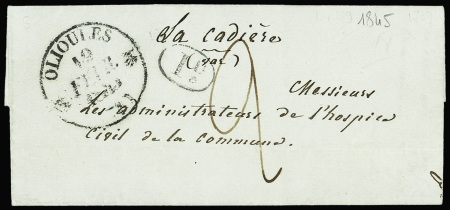 1845
La cadière
(var)
OLIOULES
12
FEVR.
1D
2
Messieurs
Les administrateurs de l'hospice
Civil de la commune.